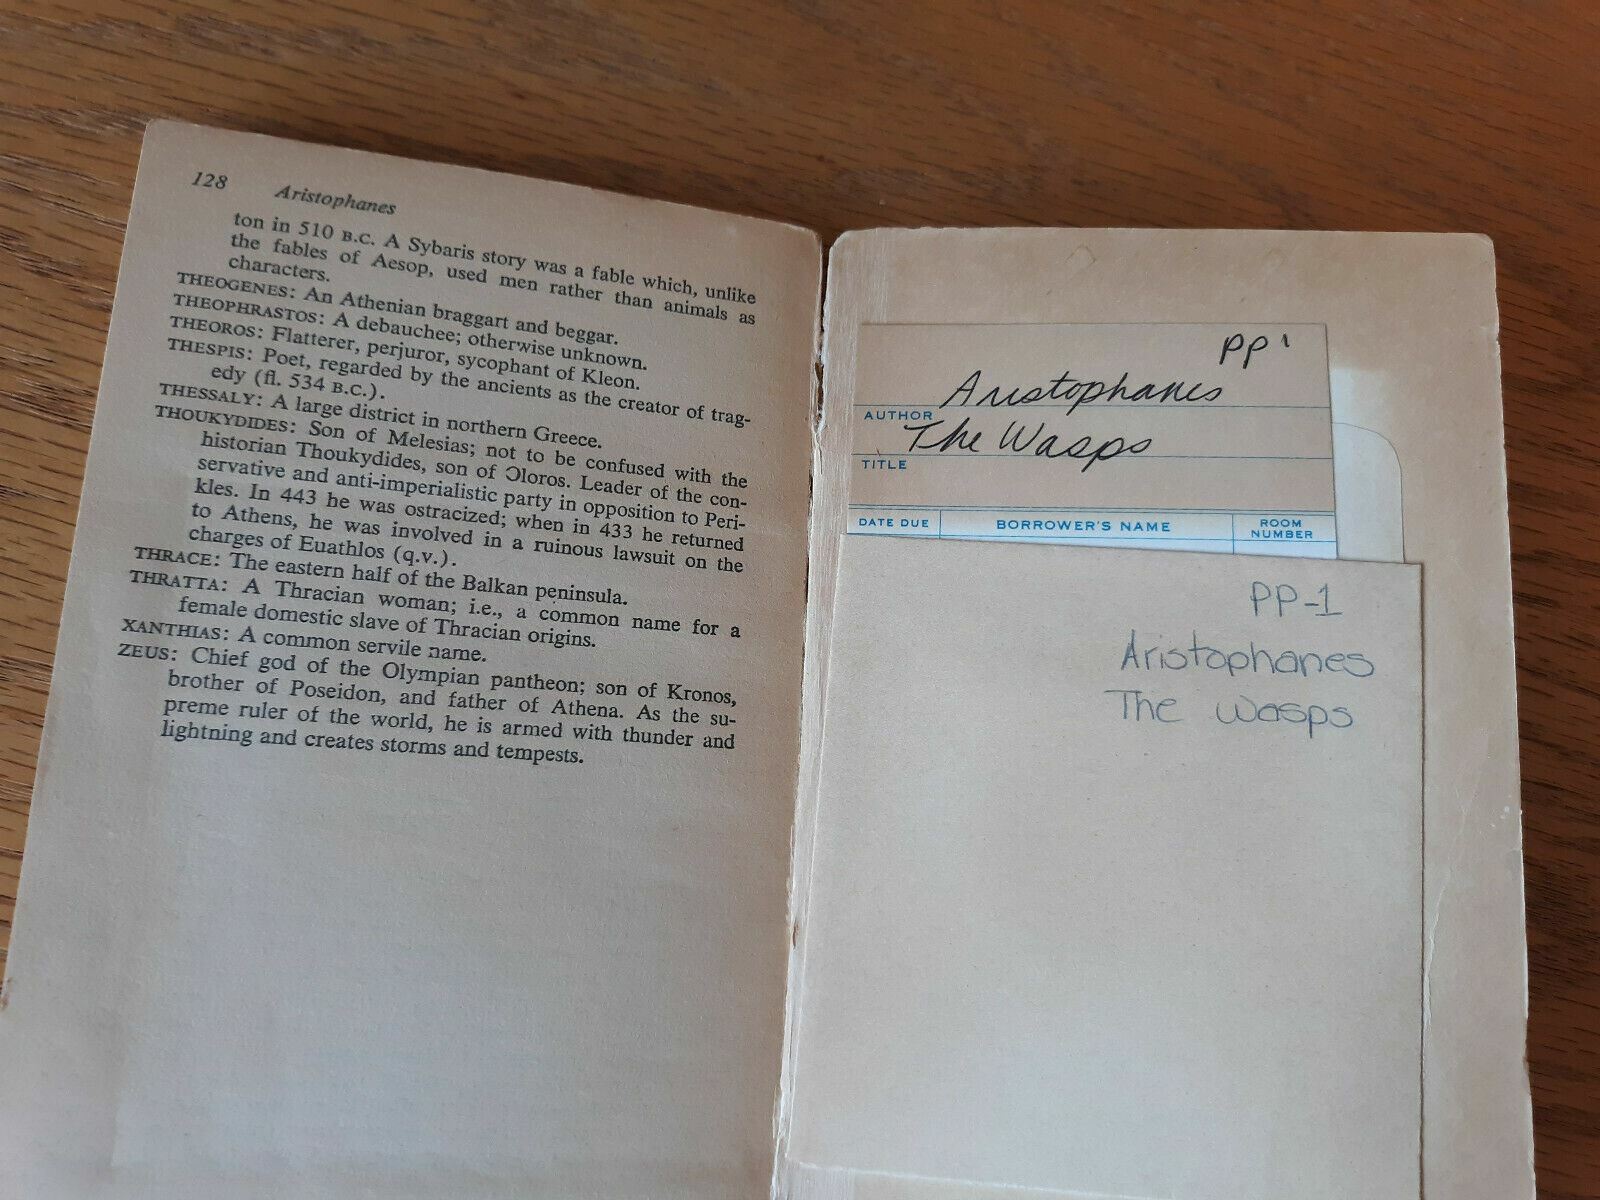 128 Aristophanes
ton in 510 B.C. A Sybaris story was a fable which, unlike
the fables of Aesop, used men rather than animals as
characters.
THEOGENES: An Athenian braggart and beggar.
THEOPHRASTOS: A debauchee; otherwise unknown.
THEOROS: Flatterer, perjuror, sycophant of Kleon.
THESPIS: Poet, regarded by the ancients as the creator of trag-
edy (fl. 534 B.C.).
THESSALY: A large district in northern Greece.
THOUKYDIDES: Son of Melesias; not to be confused with the
historian Thoukydides, son of Oloros. Leader of the con-
servative and anti-imperialistic party in opposition to Peri-
kles. In 443 he was ostracized; when in 433 he returned
to Athens, he was involved in a ruinous lawsuit on the
charges of Euathlos (q.v.).
THRACE: The eastern half of the Balkan peninsula.
THRATTA: A Thracian woman; i.e., a common name for a
female domestic slave of Thracian origins.
XANTHIAS: A common servile name.
ZEUS: Chief god of the Olympian pantheon; son of Kronos,
brother of Poseidon, and father of Athena. As the su-
preme ruler of the world, he is armed with thunder and
lightning and creates storms and tempests.
PP1
Aristophanes
AUTHOR
The Wasps
TITLE
DATE DUE BORROWER'S NAME ROOM NUMBER
PP-1
Aristophanes
The Wasps